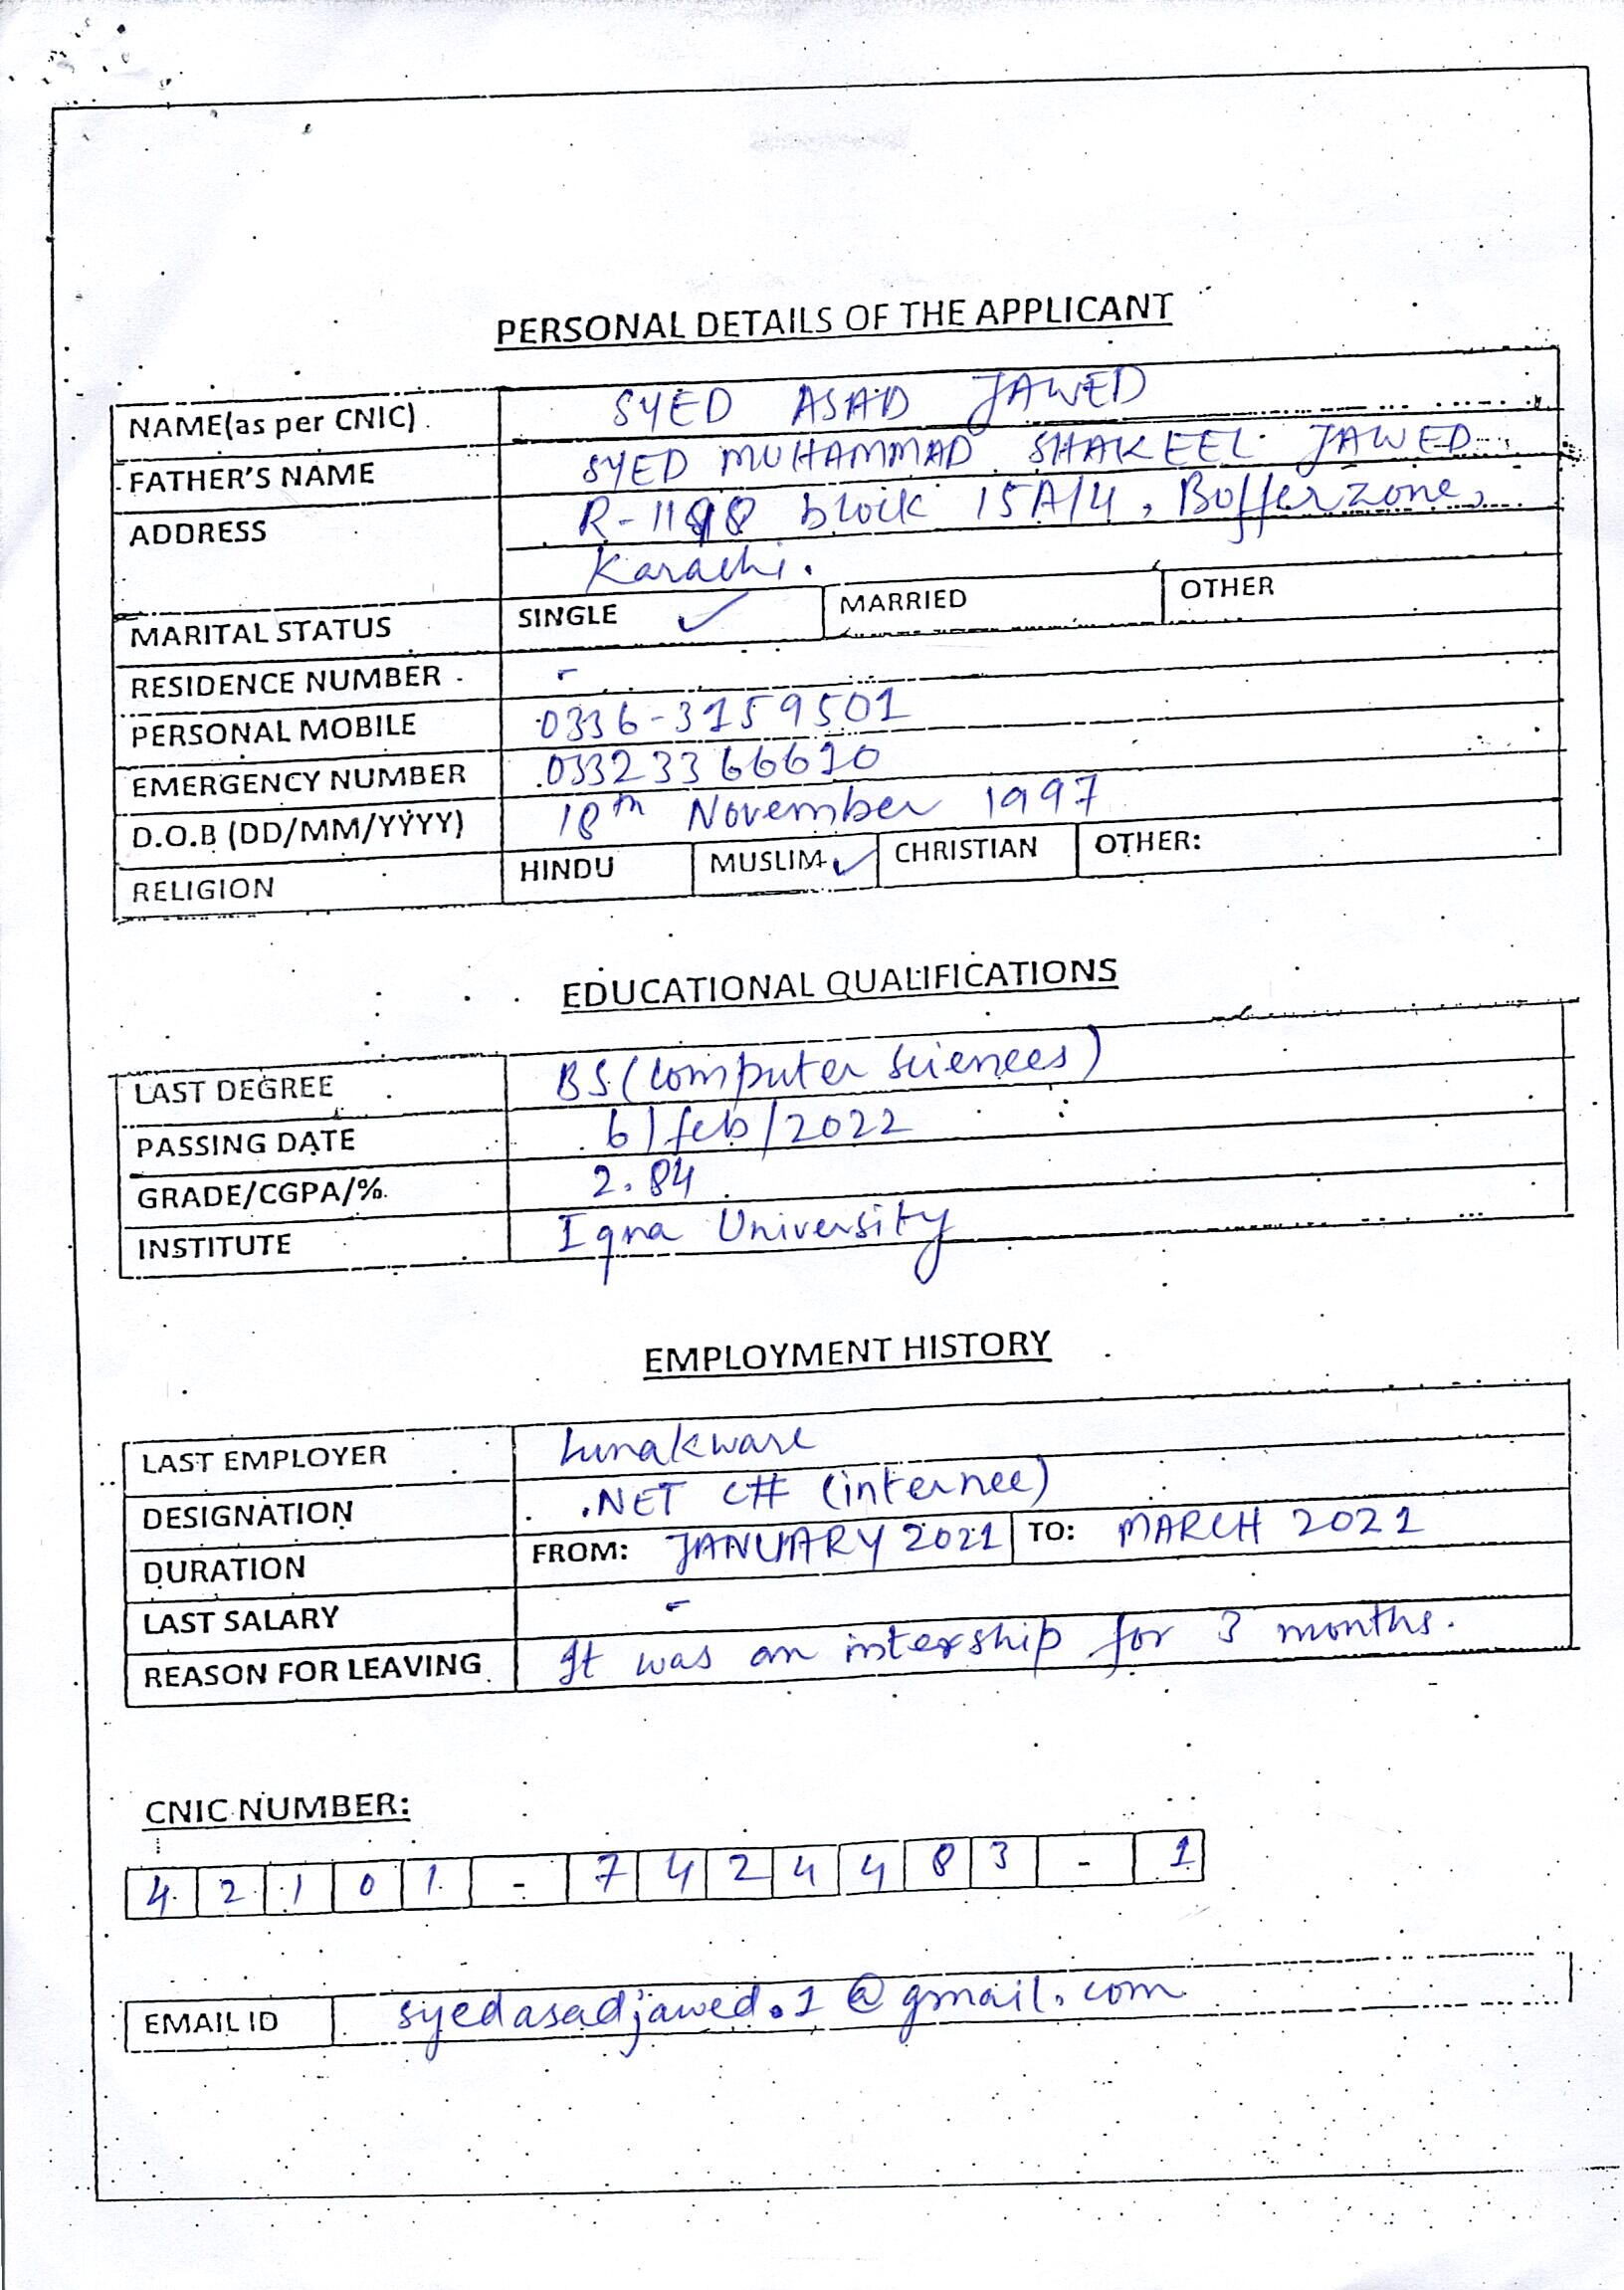 PERSONAL DETAILS OF THE APPLICANT
NAME(as per CNIC) SYED ASAD JAWED
FATHER'S NAME SYED MUHAMMAD SHAKEEL JAWED
ADDRESS block 15A/4, Bufferzone,
Karachi.
MARITAL STATUS SINGLE ✓ MARRIED OTHER
RESIDENCE NUMBER -
PERSONAL MOBILE 0336-3159501
EMERGENCY NUMBER 03323366610
D.O.B (DD/MM/YYYY) 18th November 1997
RELIGION HINDU MUSLIM ✓ CHRISTIAN OTHER:
EDUCATIONAL QUALIFICATIONS
LAST DEGREE BS(Computer Sciences)
PASSING DATE 6/feb/2022
GRADE/CGPA/% 2.84
INSTITUTE Iqra University
EMPLOYMENT HISTORY
LAST EMPLOYER
DESIGNATION .NET C# (internee)
DURATION FROM: JANUARY 2021 TO: MARCH 2021
LAST SALARY -
REASON FOR LEAVING It was an intership for 3 months.
CNIC NUMBER:
42101-7424483-1
EMAIL ID syedasadjawed.1@gmail.com